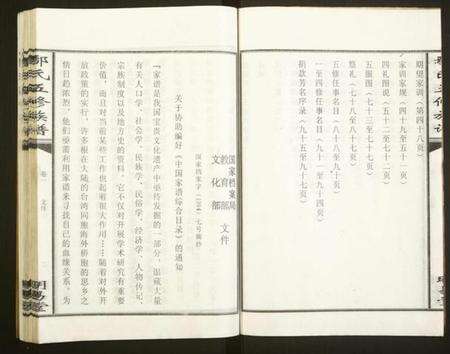 期望家训（第四十八页）
家训家规（四十九至五十一页）
四礼图说（五十二至七十二页）
五服图（七十三至七十七页）
祭礼（七十八至八十七页）
五修任事名目（八十八至九十页）
一至四修任事名目（九十一至九十四页）
捐款芳名序录（九十五至九十七页）
国家档案局
教育部 文件
文化部
国家档会字（1984）七号摘抄
关于协助编好《中国家谱综合目录》的通知
「家谱是我国宝贵文化遗产中亟待发掘的一部分，蕴藏大量
有关人口学、社会学、民族学、民俗学、经济学、人物传记、
宗族制度以及地方史的资料，它不仅对开展学术研究有重要
价值，而且对当前某些工作也起着很大作用……随着对外开
放政策的实行，许多根在大陆的台湾同胞海外侨胞的思乡之
情日趋浓烈，他们亟需利用家谱来寻找自己的血缘关系。为
氏五修族谱
卷一
文件